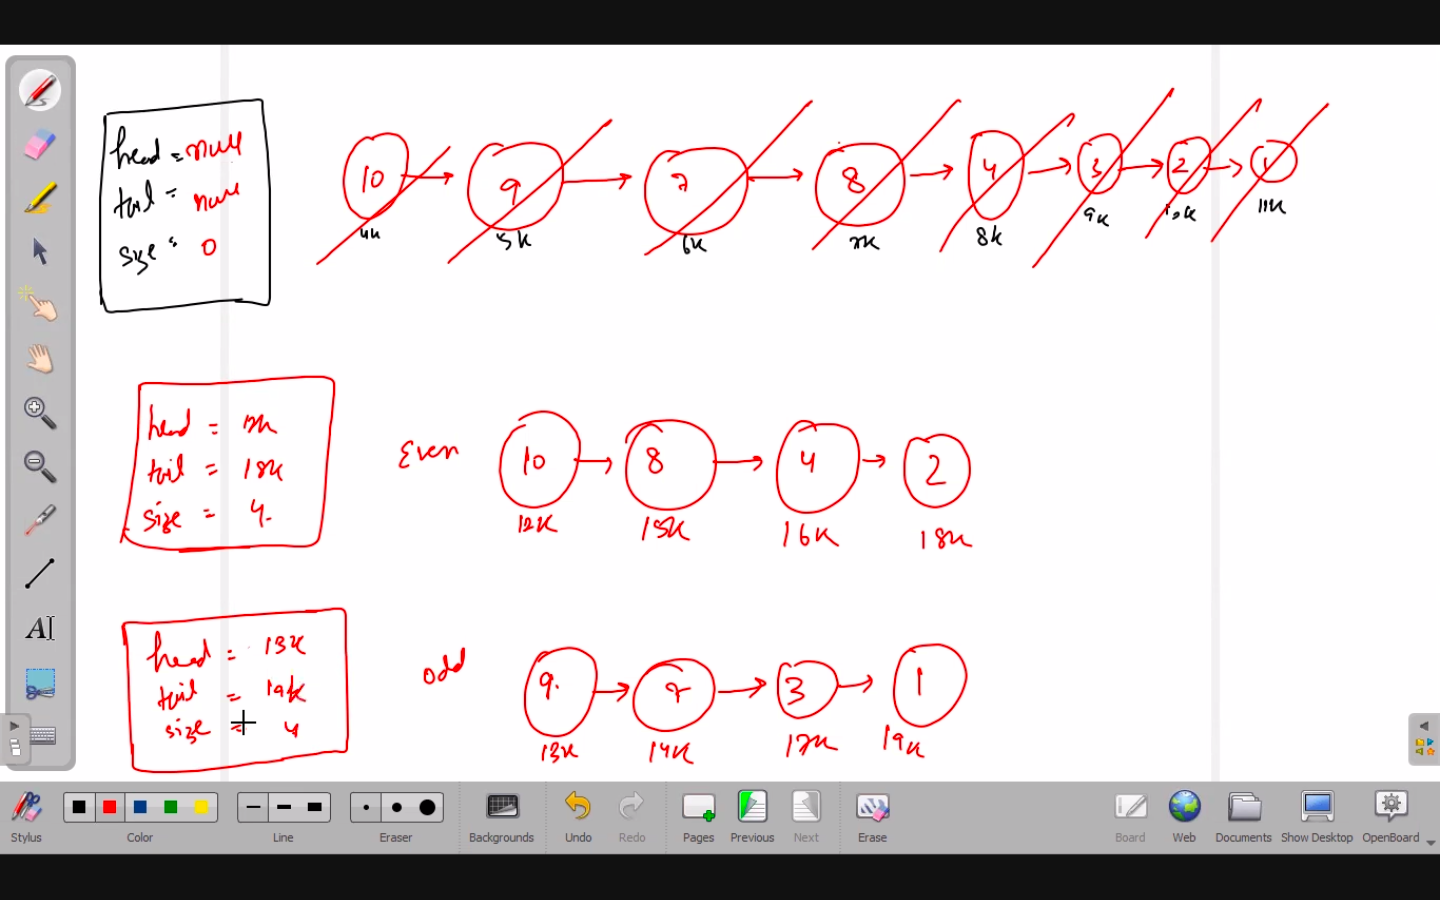 head = null
tail = null
size = 0
10 → 9 → 7 → 8 → 4 → 3 → 2 → 1
4K 5K 6K 7K 8K 9K 10K 11K
head = 12K
tail = 18K
size = 4.
Even 10 → 8 → 4 → 2
12K 15K 16K 18K
head = 13K
tail = 19K
size = 4
odd 9. → 7 → 3 → 1
13K 14K 17K 19K
AI
Stylus Color Line Eraser Backgrounds Undo Redo Pages Previous Next Erase Board Web Documents Show Desktop OpenBoard